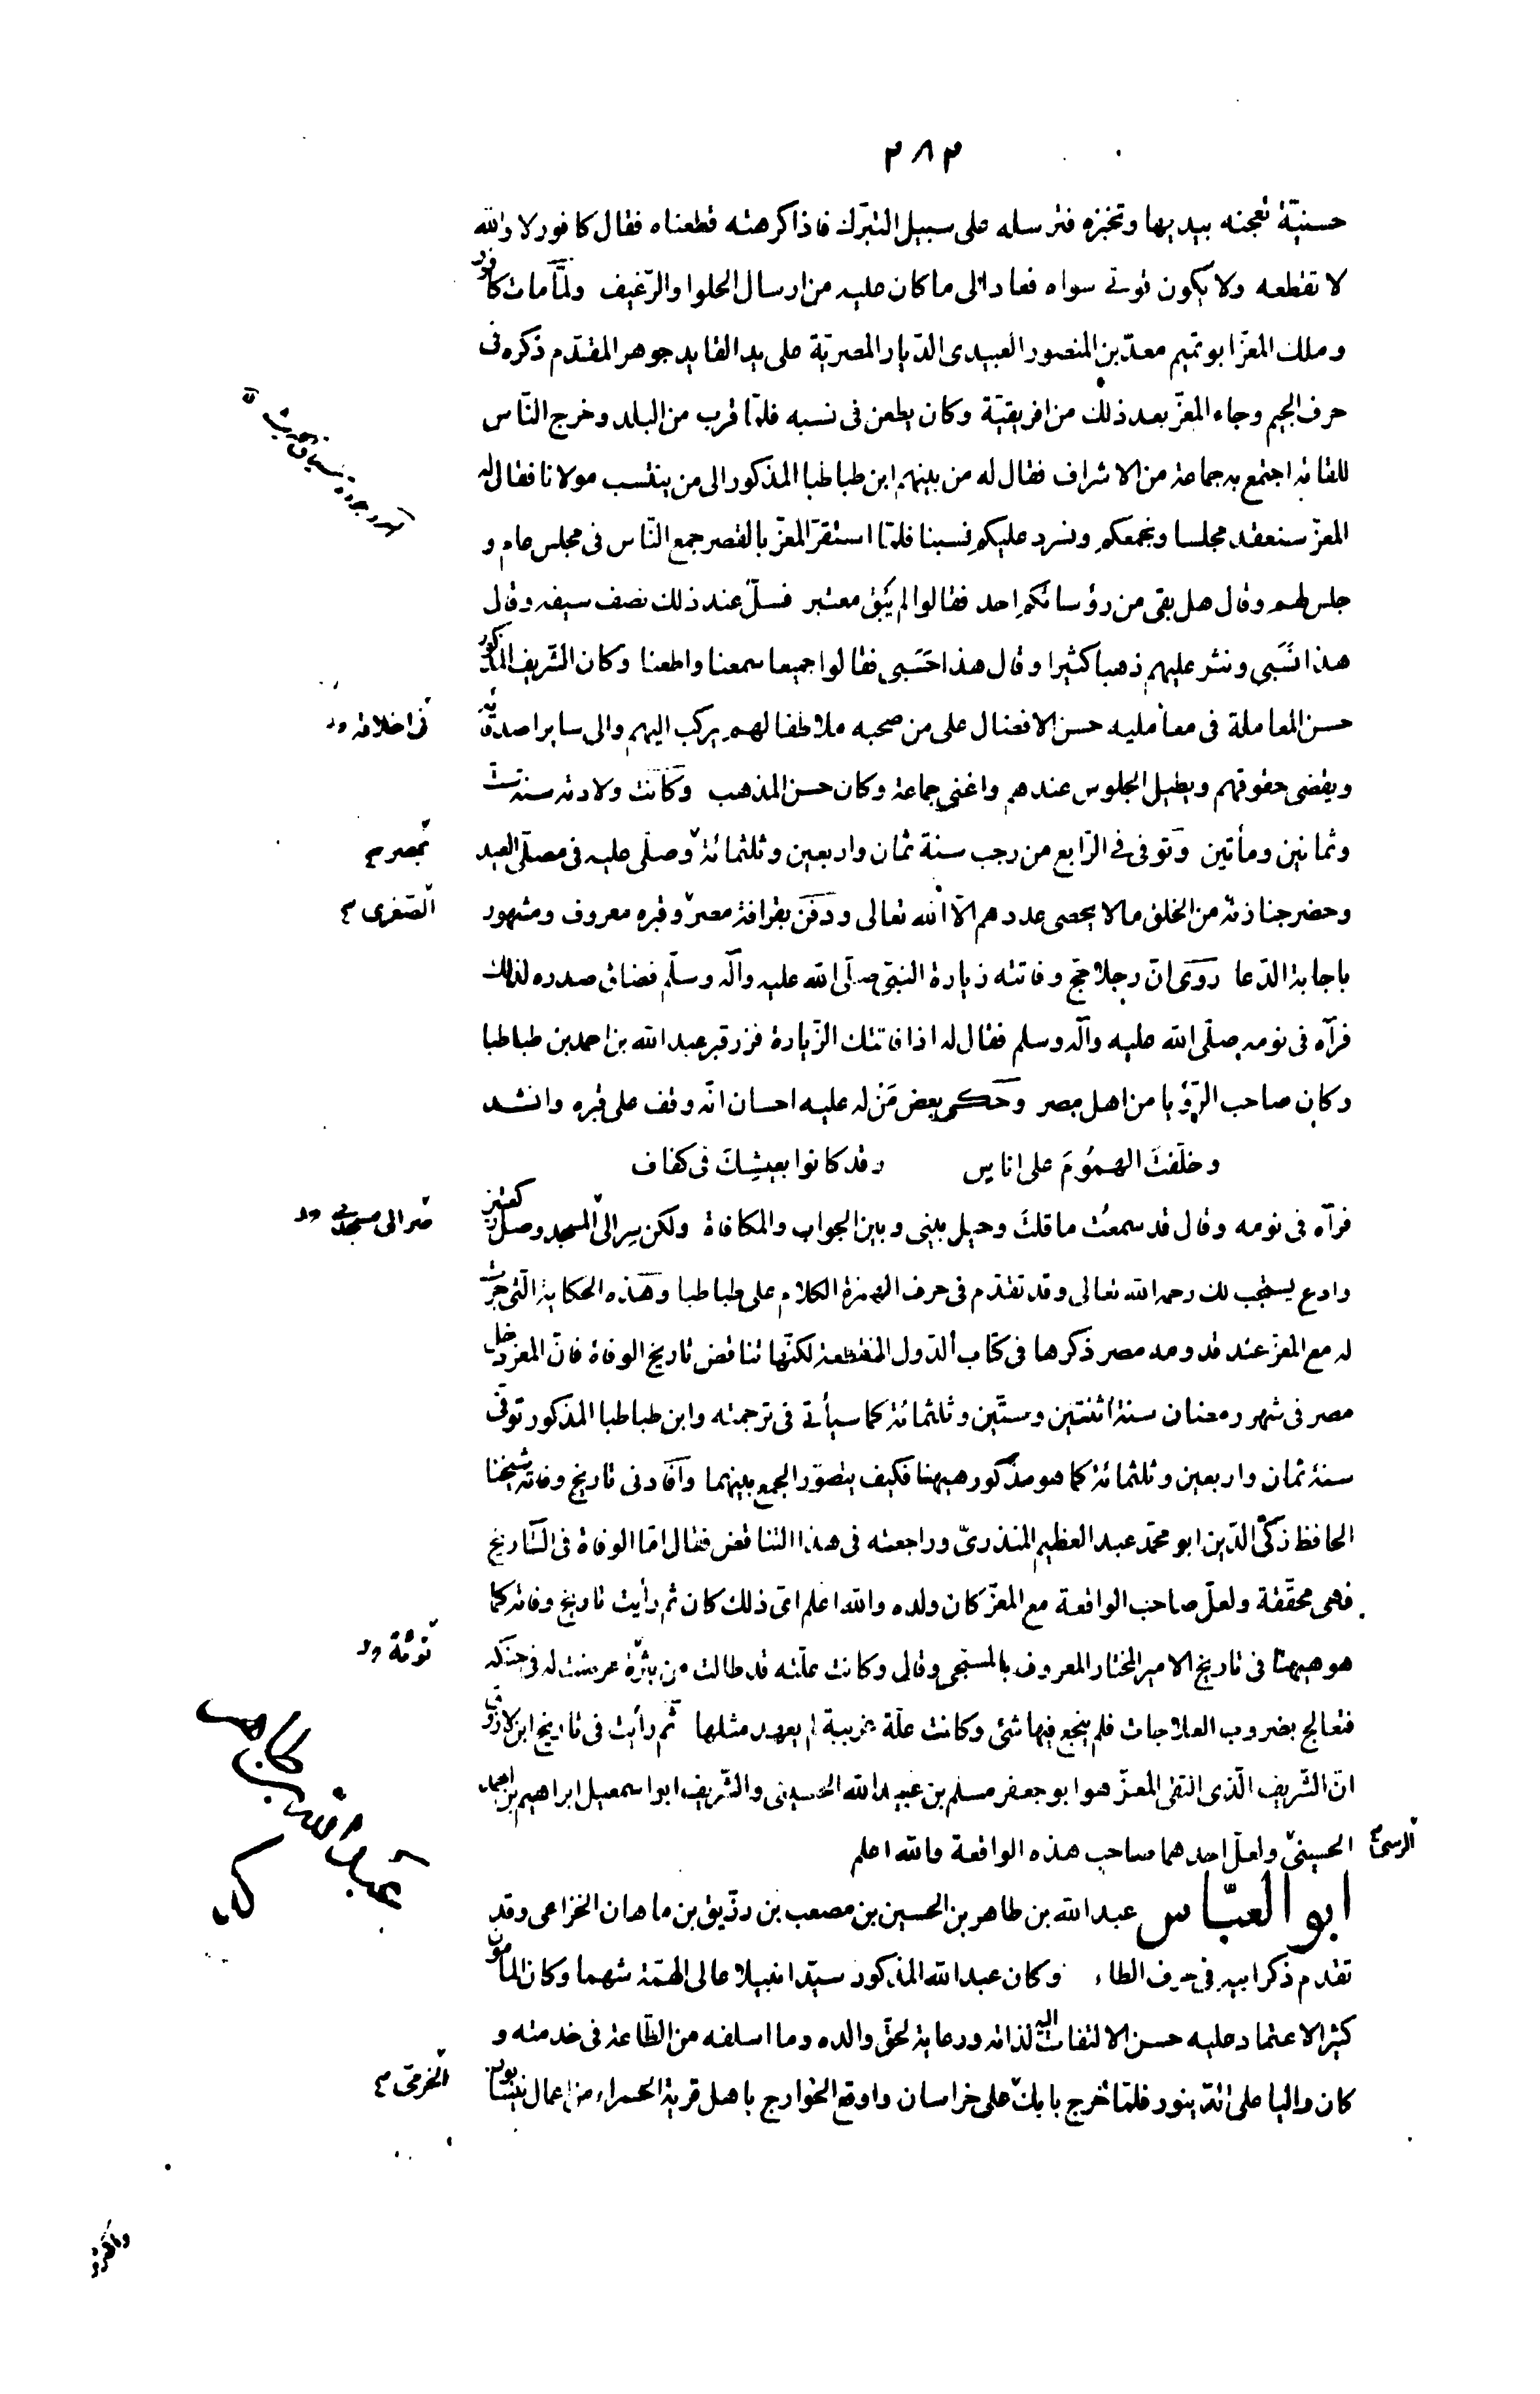 ٢٨٢
حسنيّة تعجنه بيديها وتخبزه فترسله على سبيل التبرّك فاذا كرهته قطعناه فقال كافور لا والله
لا تقطعه ولا يكون قوتى سواه فعاد الى ما كان عليه من ارسال الحلوا والرّغيف ولمّا مات كافور
وملك المعزّ ابو تميم معدّ بن المنصور العبيدى الدّيار المصريّة على يد القايد جوهر المقدّم ذكره فى
حرف الجيم وجاء المعزّ بعد ذلك من افريقيّة وكان يطعن فى نسبه فلمّا قرب من البلد وخرج النّاس
للقائه اجتمع به جماعة من الاشراف فقال له من بينهم ابن طباطبا المذكور الى من ينتسب مولانا فقال له
المعزّ سنعقد مجلسا ونجمعكم ونسرد عليكم نسبنا فلمّا استقرّ المعزّ بالقصر جمع النّاس فى مجلس عام و
جلس لهم وقال هل بقى من رؤسائكم احد فقالوا لم يبق معتبر فسلّ عند ذلك نصف سيفه وقال
هذا نسبى ونثر عليهم ذهبا كثيرا وقال هذا حسبى فقالوا جميعا سمعنا واطعنا وكان الشّريف المذكور
حسن المعاملة فى معامليه حسن الافضال على من صحبه ملاطفا لهم يركب اليهم والى ساير اصدقائه
فى اخلاقه
ويقضى حقوقهم ويطيل الجلوس عندهم واغنى جماعة وكان حسن المذهب وكانت ولادته سنة ستّ
وثمانين ومأتين وتوفى فى الرّابع من رجب سنة ثمان واربعين وثلثمائة وصلّى عليه فى مصلّى العيد
بمصر
وحضر جنازته من الخلق ما لا يحصى عددهم الّا الله تعالى ودفن بقرافة مصر وقبره معروف ومشهور
الصّغرى
باجابة الدّعا روى انّ رجلا حجّ وفاتته زيارة النبىّ صلّى الله عليه وآله وسلّم فضاق صدره لذلك
فرآه فى نومه صلّى الله عليه وآله وسلم فقال له اذا فاتتك الزّيارة فزر قبر عبد الله بن احمد بن طباطبا
وكان صاحب الرّؤيا من اهل مصر وحكى بعض من له عليه احسان انّه وقف على قبره وانشد
وخلّفتَ الهمُومَ على اناس وقد كانوا بعيشِكَ فى كفاف
فرآه فى نومه وقال قد سمعتُ ما قلتَ وحيل بينى وبين الجواب والمكافاة ولكن سِر الى المسجد وصلّ ركعتين
صر الى مسجدى
وادع يستجب لك رحمه الله تعالى وقد تقدّم فى حرف الهمزة الكلام على طباطبا وهذه الحكاية الّتى جرت
له مع المعزّ عند قدومه مصر ذكرها فى كتاب الدّول المنقطعة لكنّها تناقض تاريخ الوفاة فانّ المعزّ دخل
مصر فى شهر رمضان سنة اثنتين وستّين وثلثمائة كما سيأتى فى ترجمته وابن طباطبا المذكور توفّى
سنة ثمان واربعين وثلثمائة كما هو مذكور هيهنا فكيف يتصوّر الجمع بينهما وآفادنى تاريخ وفاته شيخنا
الحافظ زكىّ الدّين ابو محمّد عبد العظيم المنذرىّ وراجعته فى هذا التناقض فقال امّا الوفاة فى التّاريخ
فهى محقّقة ولعلّ صاحب الواقعة مع المعزّ كان ولده والله اعلم اىّ ذلك كان ثم رأيت تاريخ وفاته كما
هو هيهنا فى تاريخ الامير المختار المعروف بالمسبّحى وقال وكانت علّته قد طالت من بثرة عرضت له فى حنكه
فتعالج بضروب العلاجات فلم ينجع فيها شئ وكانت علّة غريبة لم يعهد مثلها ثم رأيت فى تاريخ ابن
انّ الشّريف الّذى التقى المعزّ هو ابو جعفر مسلم بن عبيد الله الحسينى والشّريف ابو اسمعيل ابراهيم بن احمد
الحسينىّ ولعلّ احدهما صاحب هذه الواقعة والله اعلم
الرسى
ابو العبّاس عبد الله بن طاهر بن الحسين بن مصعب بن رزّيق بن ماهان الخزاعى وقد
تقدم ذكر ابيه فى حرف الطاء وكان عبد الله المذكور سيّدا نبيلا عالى الهمّة شهما وكان المامون
كثير الاعتماد عليه حسن الالتفات اليه لذاته ورعاية لحقّ والده وما اسلفه من الطّاعة فى خدمته و
كان واليا على الدّينور فلمّا خرج بابك على خراسان واوقع الخوارج باهل قرية الحمراء من اعمال نيسابور
الخرمى
عبد الله بن طاهر